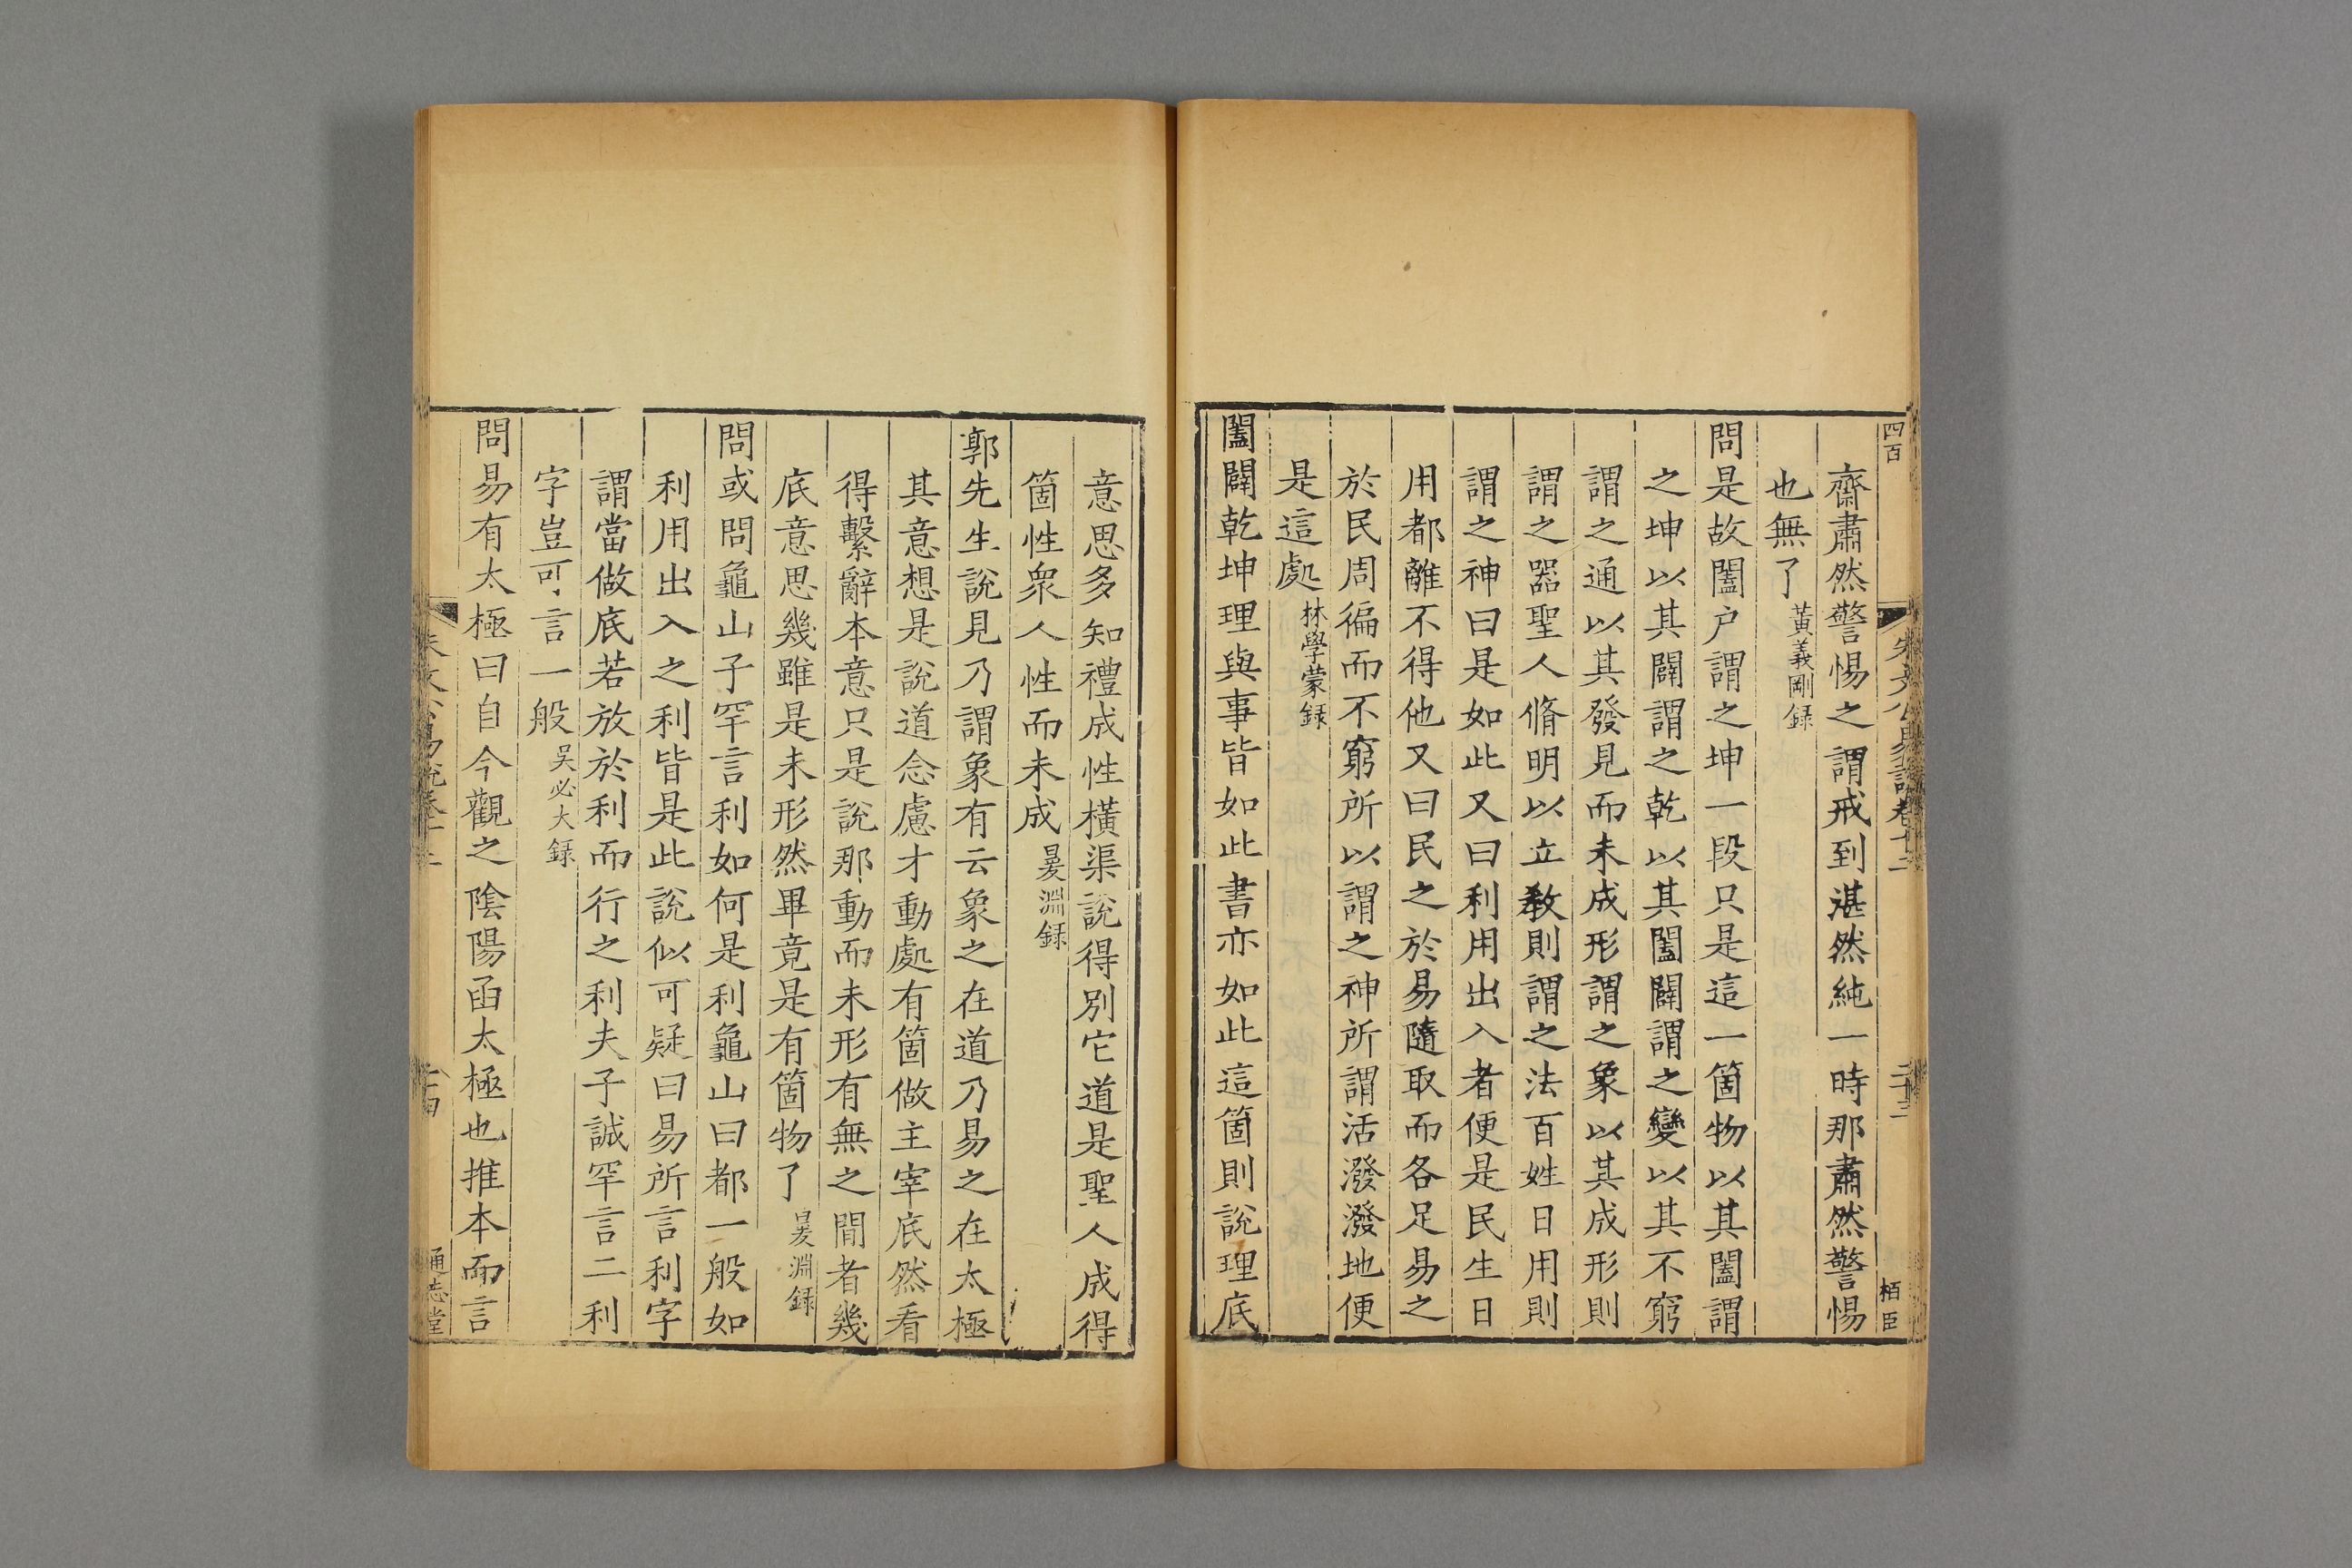 四百
朱文公易說卷十二
二十三
栢臣
齋肅然警惕之謂戒到湛然純一時那肅然警惕
也無了黃義剛録
問是故闔户謂之坤一段只是這一箇物以其闔謂
之坤以其闢謂之乾以其闔闢謂之變以其不窮
謂之通以其發見而未成形謂之象以其成形則
謂之器聖人脩明以立教則謂之法百姓日用則
謂之神曰是如此又曰利用出入者便是民生日
用都離不得他又曰民之於易隨取而各足易之
於民周徧而不窮所以謂之神所謂活潑潑地便
是這處林學蒙録
闔闢乾坤理與事皆如此書亦如此這箇則說理底
意思多知禮成性橫渠說得別它道是聖人成得
箇性衆人性而未成㬊淵録
郭先生說見乃謂象有云象之在道乃易之在太極
其意想是說道念慮才動處有箇做主宰底然看
得繫辭本意只是說那動而未形有無之間者幾
底意思幾雖是未形然畢竟是有箇物了㬊淵録
問或問龜山子罕言利如何是利龜山曰都一般如
利用出入之利皆是此說似可疑曰易所言利字
謂當做底若放於利而行之利夫子誠罕言二利
字豈可言一般吳必大録
問易有太極曰自今觀之陰陽函太極也推本而言
朱文公易說卷十二
二十四
通志堂